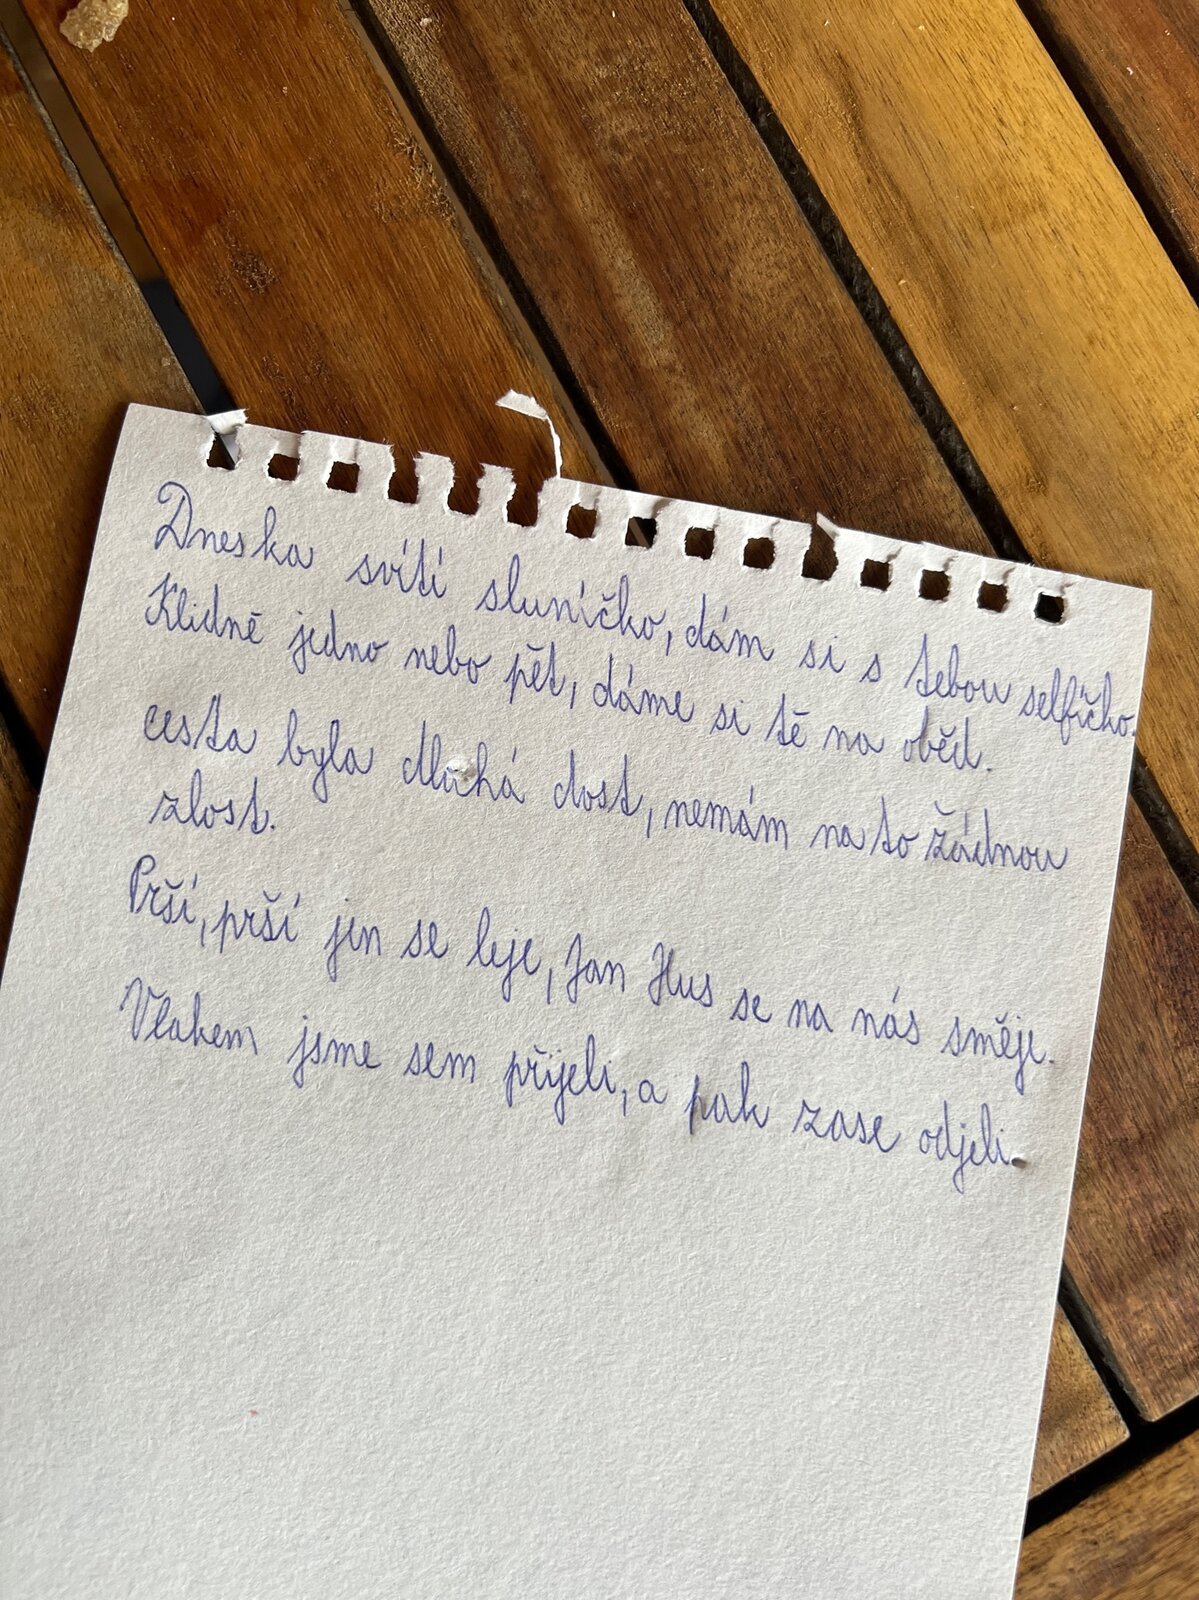 Dneska svítí sluníčko, dám si s tebou selfíčko.
Klidně jedno nebo pět, dáme si tě na oběd.
cesta byla dlohá dost, nemám na to žádnou
zlost.
Prší, prší jen se leje, Jan Hus se na nás směje.
Vlakem jsme sem přijeli, a pak zase odjeli.